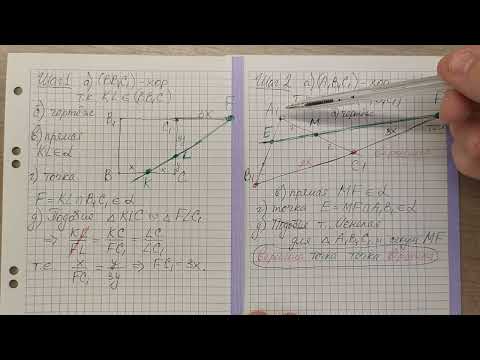 Шаг 1 а) (BB₁C₁) - хор
т.к KL ∈ (BB₁C₁)
б) чертёж
в) прямая
KL ∈ α
г) точка
F = KL ∩ B₁C₁ ∈ α
д) Подобие △KLC ∾ △FLC₁
⇒ KL/FL = KC/FC₁ = LC/LC₁
т.е. x/FC₁ = y/3y ⇒ FC₁ = 3x.
B₁
C₁
3x
F
3y
L
y
B
x
K
x
C
Шаг 2 а) (A₁B₁C₁) - хор
б) чертёж
A₁
F
E
M
3x
B₁
C₁
в) прямая MF ∈ α
г) точка E = MF ∩ A₁B₁ ∈ α
д) Подобие т. Менелая
для △ A₁B₁C₁ и секущ MF
вершина точка точка вершина